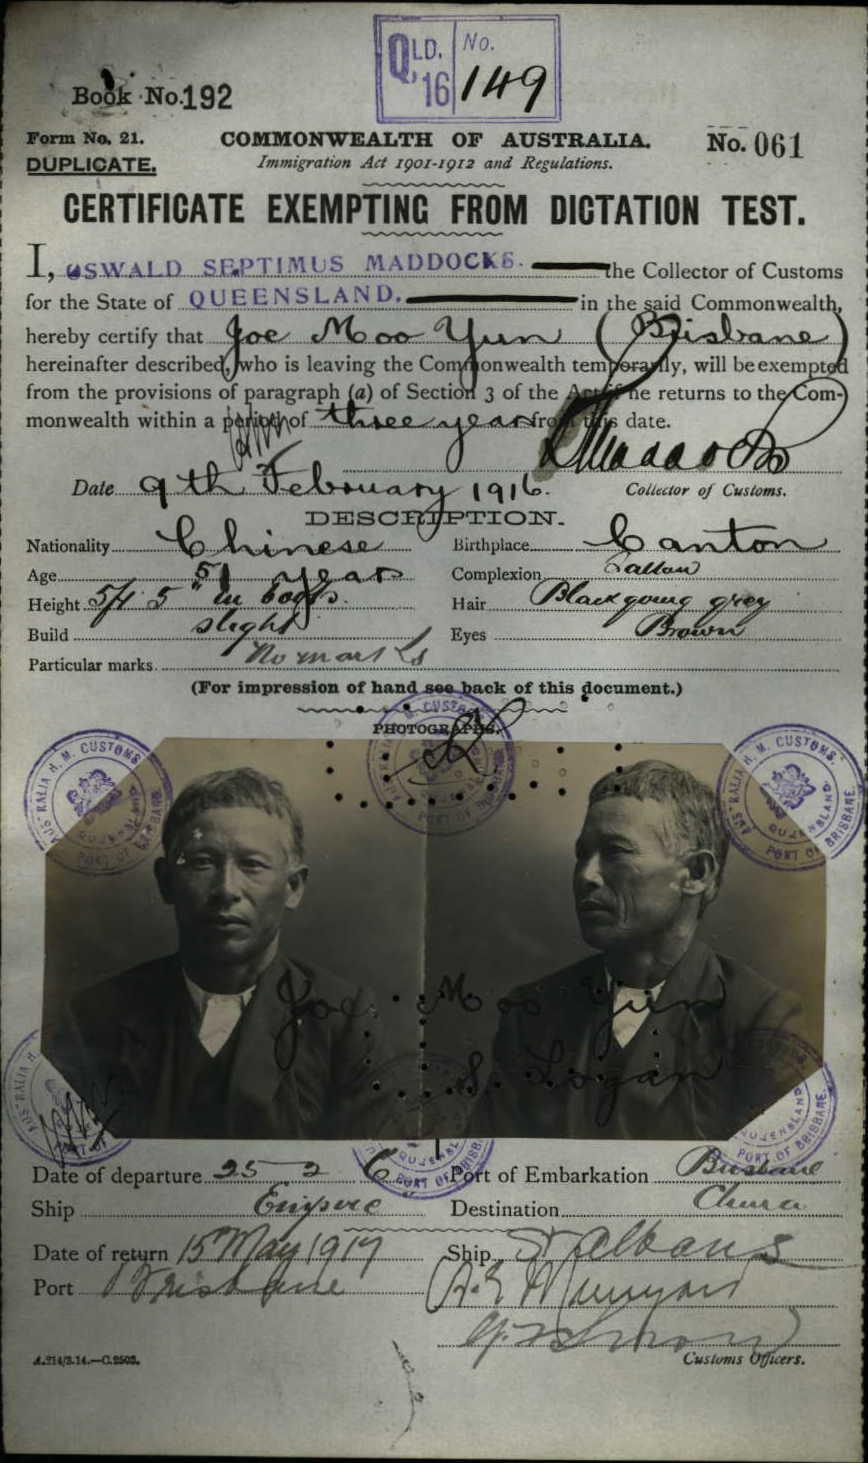 QLD. No.
'16 149
Book No. 192
Form No. 21. COMMONWEALTH OF AUSTRALIA. No. 061
DUPLICATE. Immigration Act 1901-1912 and Regulations.
CERTIFICATE EXEMPTING FROM DICTATION TEST.
I, OSWALD SEPTIMUS MADDOCKS. the Collector of Customs
for the State of QUEENSLAND. in the said Commonwealth,
hereby certify that Joe Moo Yun (Brisbane)
hereinafter described, who is leaving the Commonwealth temporarily, will be exempted
from the provisions of paragraph (a) of Section 3 of the Act if he returns to the Com-
monwealth within a period of three years from this date.
Date 9th February 1916. Collector of Customs.
DESCRIPTION.
Nationality Chinese Birthplace Canton
Age 51 years Complexion Sallow
Height 5ft 5" in boots. Hair Black going grey
Build slight Eyes Brown
Particular marks. No marks
(For impression of hand see back of this document.)
PHOTOGRAPHS.
H. M. CUSTOMS. AUSTRALIA QUEENSLAND PORT OF BRISBANE.
H. M. CUSTOMS. AUSTRALIA QUEENSLAND PORT OF BRISBANE.
Joe Moo Yun
S. Logan
Date of departure 25 2 6 Port of Embarkation Brisbane
Ship Empire Destination China
Date of return 15 May 1917 Ship St Albans
Port Brisbane
A.214/3.14.—C.2503. Customs Officers.